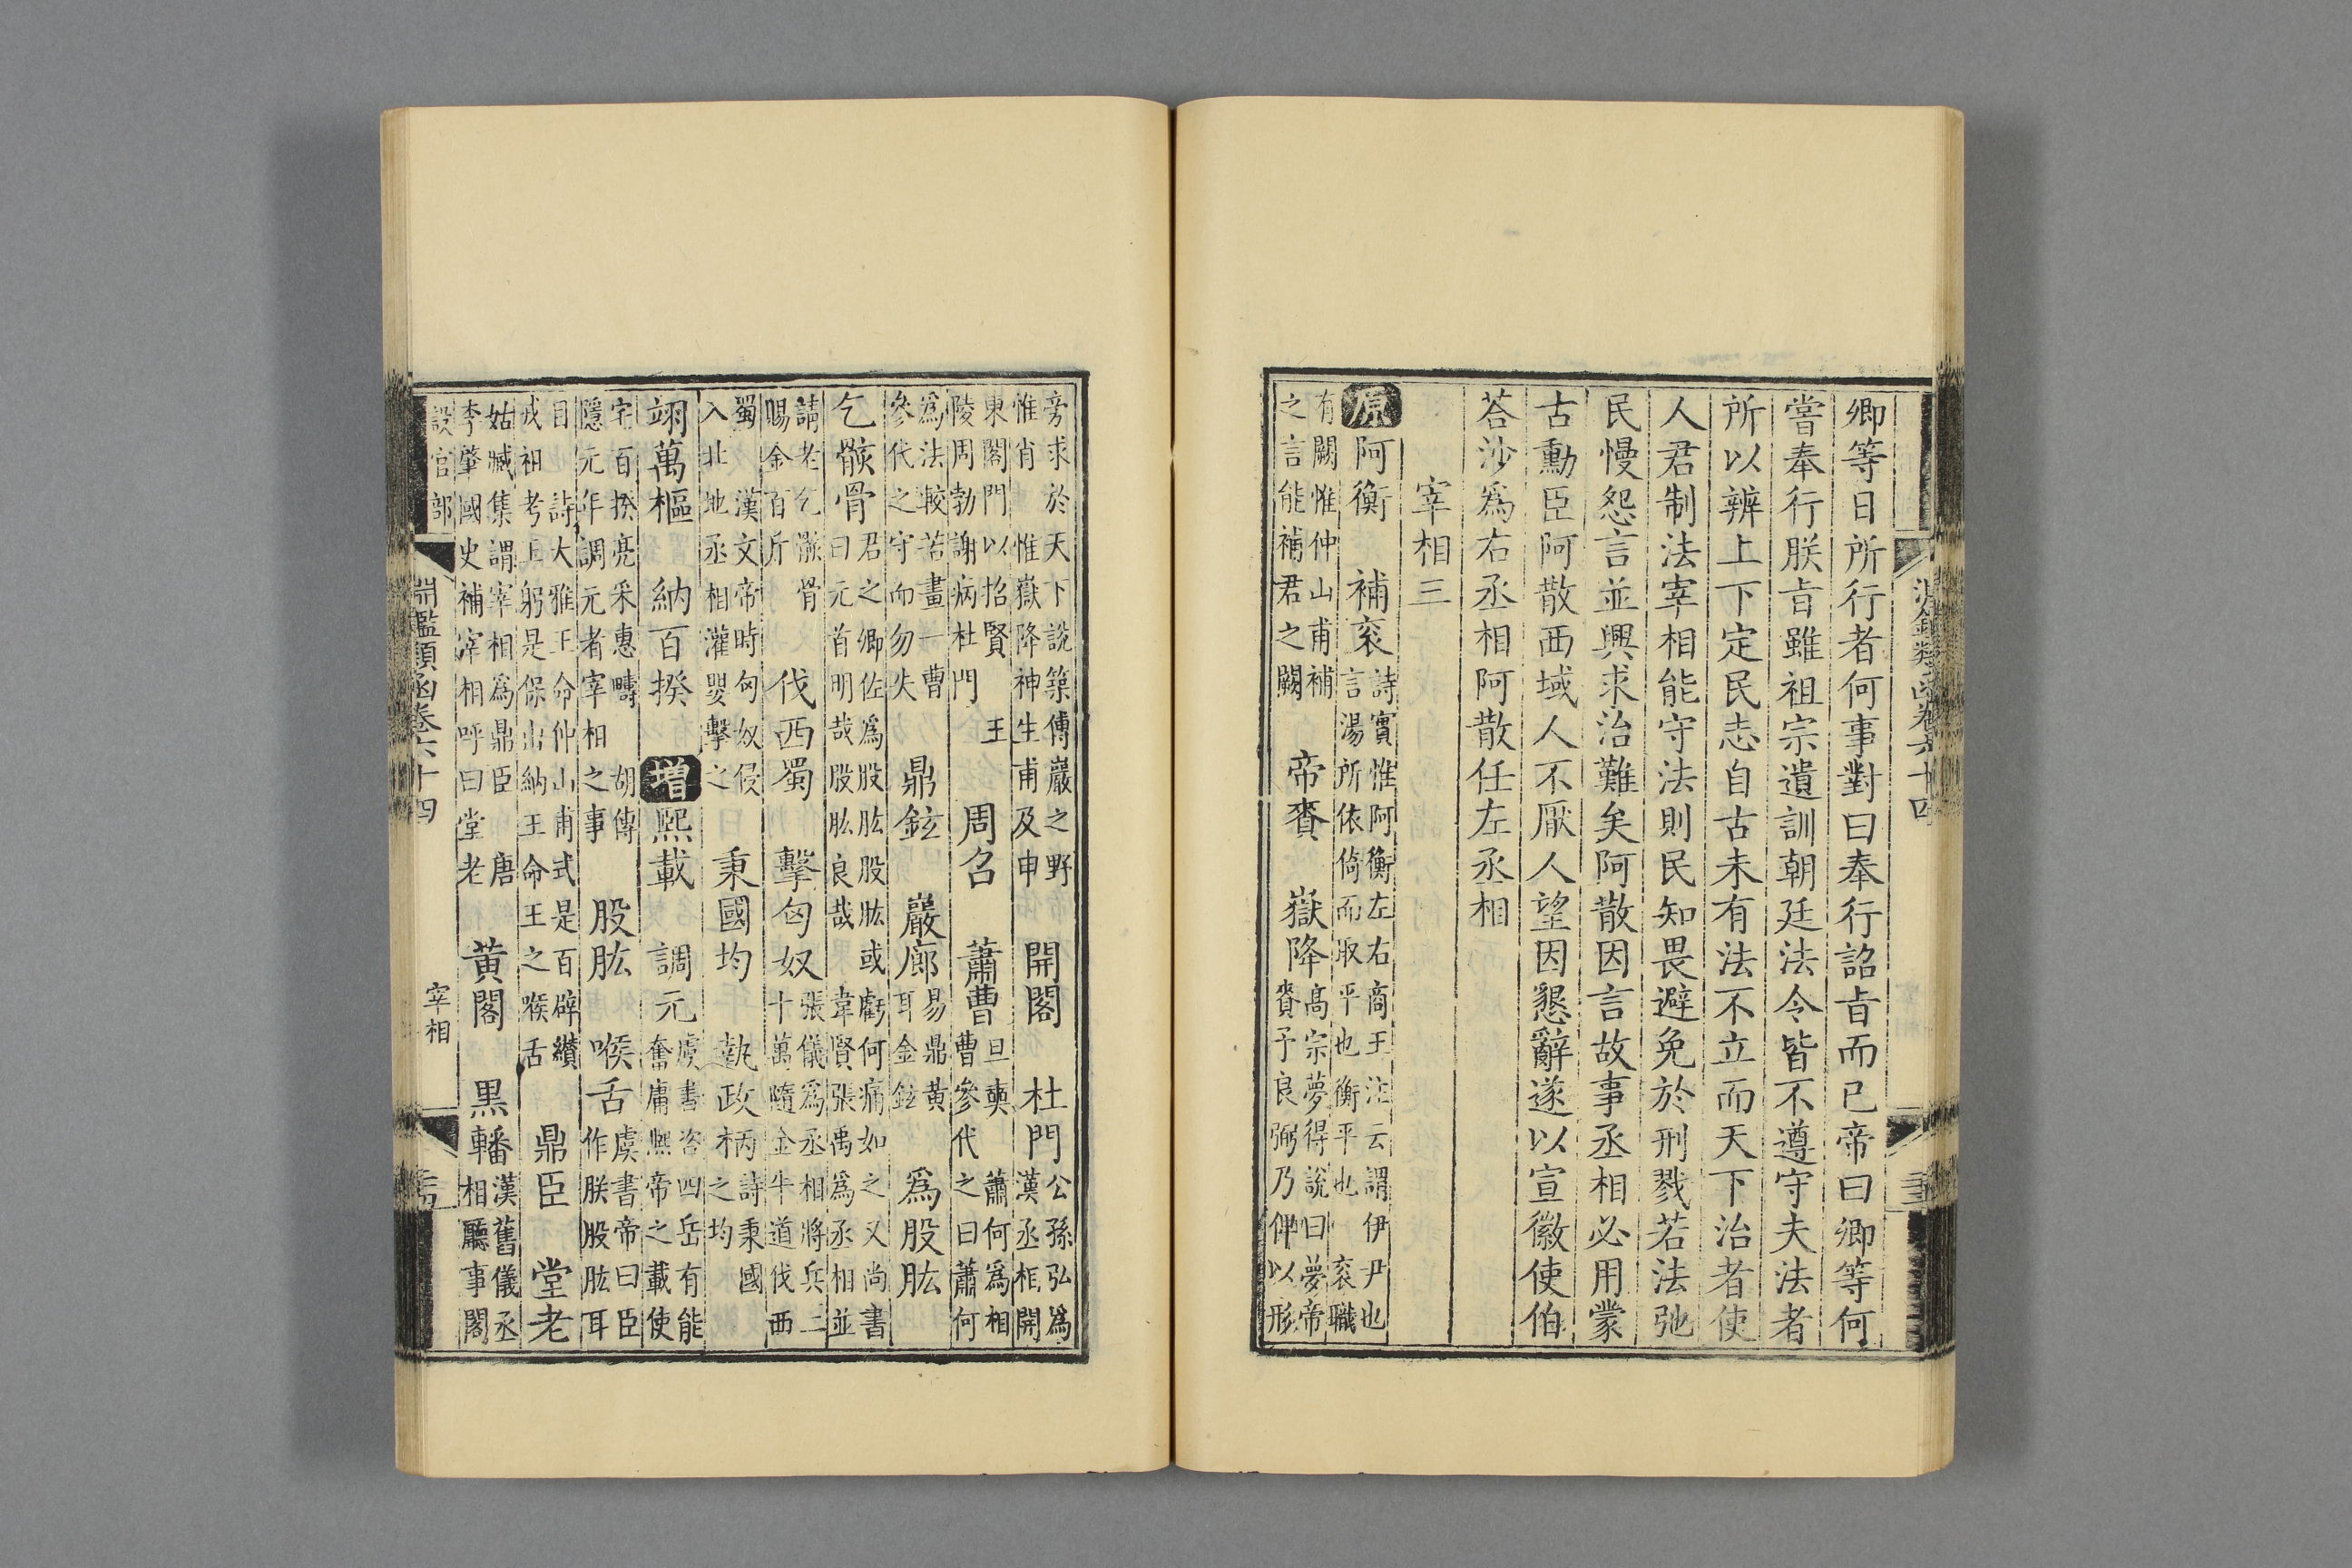 卿等日所行者何事對曰奉行詔旨而已帝曰卿等何
嘗奉行朕旨雖祖宗遺訓朝廷法令皆不遵守夫法者
所以辨上下定民志自古未有法不立而天下治者使
人君制法宰相能守法則民知畏避免於刑戮若法弛
民慢怨言並興求治難矣阿散因言故事丞相必用蒙
古勳臣阿散西域人不厭人望因懇辭遂以宣徽使伯
荅沙爲右丞相阿散任左丞相
宰相三
原阿衡 補衮
詩實惟阿衡左右商王注云謂伊尹也
言湯所依倚而取平也衡平也 衮職
有闕惟仲山甫補
之言能補君之闕
帝賚 嶽降
高宗夢得說曰夢帝
賚予良弼乃俾以形
旁求於天下說築傅巖之野
惟肖 惟嶽降神生甫及申
開閣 杜門
公孫弘爲
漢丞相開
東閣門以招賢 王
陵周勃謝病杜門
周召 蕭曹
旦奭 蕭何爲相
曹參代之曰蕭何
爲法較若畫一曹
參代之守而勿失
鼎鉉 巖廊
易鼎黃
耳金鉉
爲股肱
乞骸骨
君之卿佐爲股肱股肱或虧何痛如之又尚書
曰元首明哉股肱良哉 韋賢張禹爲丞相並
請老乞骸骨
賜金百斤
伐西蜀 擊匈奴
張儀爲丞相將兵二
十萬隨金牛道伐西
蜀 漢文帝時匈奴侵
入北地丞相灌嬰擊之
秉國均 執政柄
詩秉國
之均
翊萬樞 納百揆 增熙載 調元
虞書咨四岳有能
奮庸熙帝之載使
宅百揆亮采惠疇 胡傳
隱元年調元者宰相之事
股肱 喉舌
虞書帝曰臣
作朕股肱耳
目 詩大雅王命仲山甫式是百辟纘
戎祖考王躬是保出納王命王之喉舌
鼎臣 堂老
姑臧集謂宰相爲鼎臣 唐
李肇國史補宰相相呼曰堂老
黃閣 黒轓
漢舊儀丞
相聽事閣
設官部
淵鑑類函卷六十四
宰相